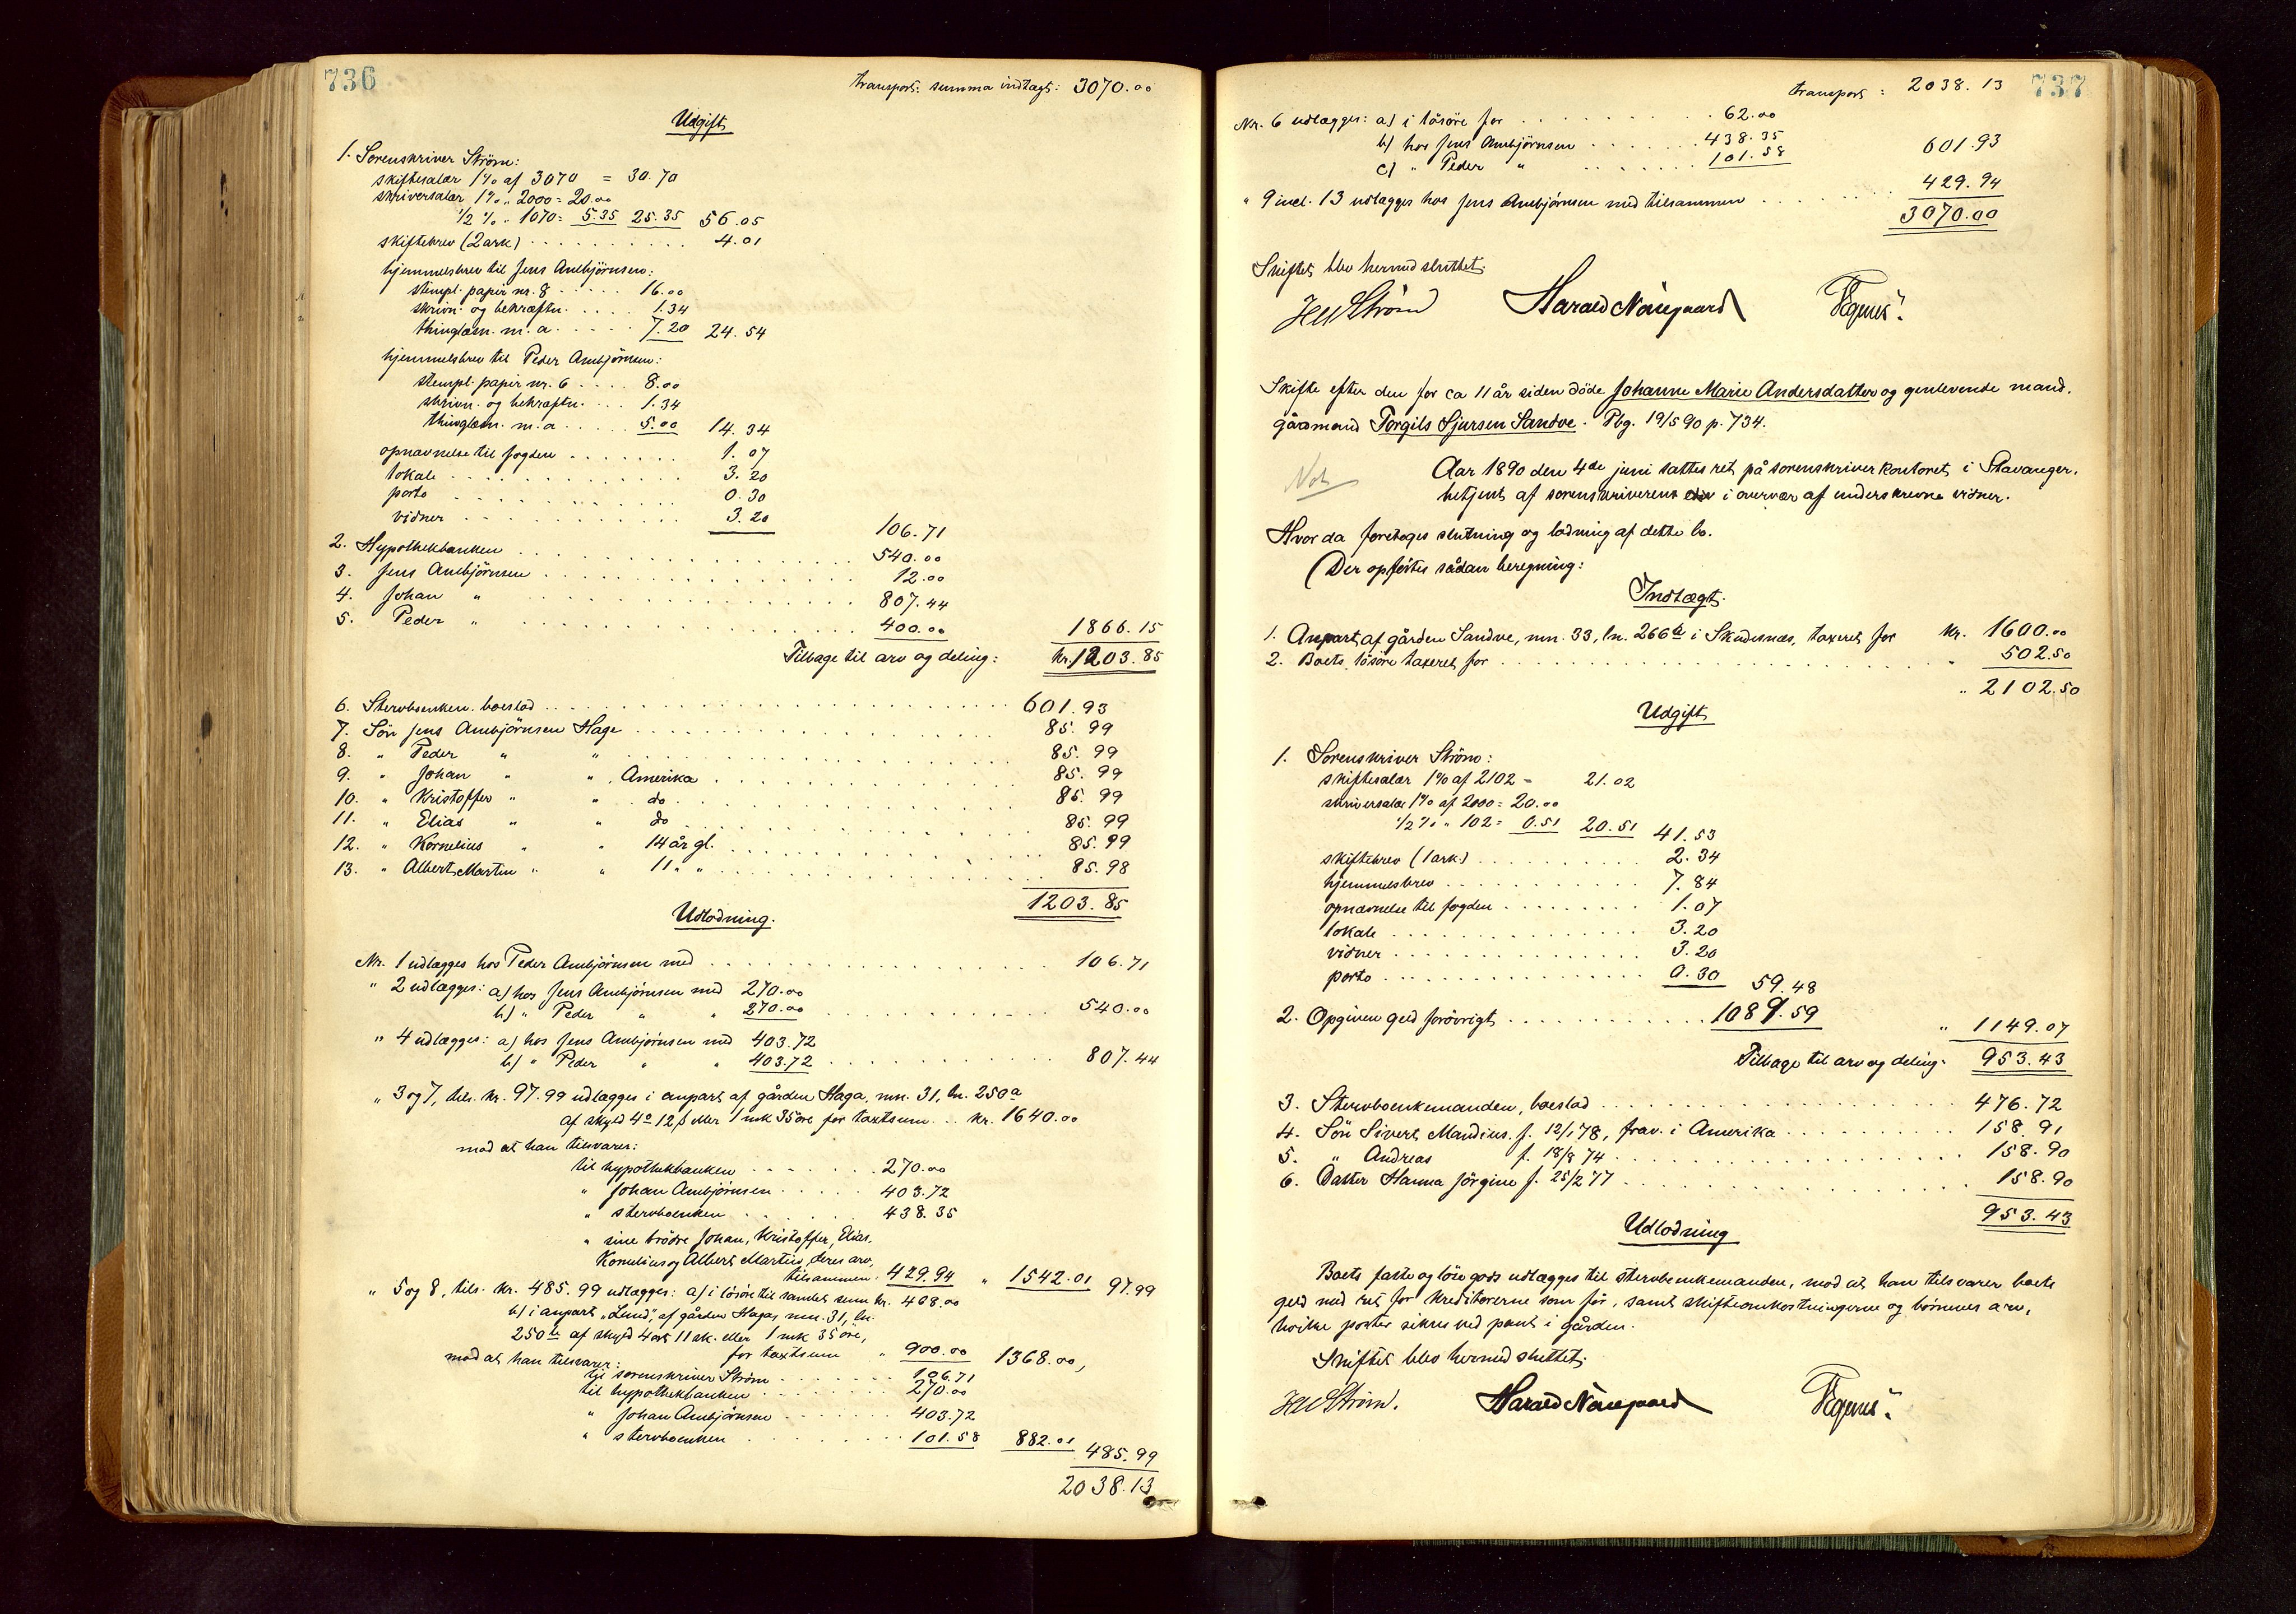 736
transport: summa indtægt: 3070.00
Udgift
1. Sorenskriver Strøm:
skiftesalær 1% af 3070 = 30.70
skriversalær 1% „ 2000 = 20.00
1/2 % „ 1070 = 5.35 25.35 56.05
skiftebrev (2 ark) 4.01
hjemmelsbrev til Jens Ambjörnsen:
stempl. papir nr. 8 16.00
skrivn. og bekræftn. 1.34
thinglæsn. m. a. 7.20 24.54
hjemmelsbrev til Peder Ambjörnsen:
stempl. papir nr. 6 8.00
skrivn. og bekræftn. 1.34
thinglæsn. m. a. 5.00 14.34
opnævnelse til fogden 1.07
lokale 3.20
porto 0.30
vidner 3.20 106.71
2. Hypothekbanken 540.00
3. Jens Ambjörnsen 12.00
4. Johan „ 807.44
5. Peder „ 400.00 1866.15
Tilbage til arv og deling: kr. 1203.85
6. Stervboenken. boeslod 601.93
7. Sön Jens Ambjörnsen Hage 85.99
8. „ Peder „ „ 85.99
9. „ Johan „ „ , Amerika 85.99
10. „ Kristoffer „ „ do 85.99
11. „ Elias „ „ do 85.99
12. „ Kornelius „ „ 14 år gl. 85.99
13. „ Albert Martin „ „ 11 „ „ 85.98
1203.85
Udlodning.
Nr. 1 udlægges hos Peder Ambjörnsen med 106.71
„ 2 udlægges: a) hos Jens Ambjörnsen med 270.00
b) „ Peder „ „ 270.00 540.00
„ 4 udlægges: a) hos Jens Ambjörnsen med 403.72
b) „ Peder „ „ 403.72 807.44
„ 3 og 7, tils. kr. 97.99 udlægges i anpart af gården Haga, mn. 31, ln. 250a
af skyld 4o 12 β eller 1 mk 35 öre for taxtsum kr. 1640.00
mod at han tilsvarer:
til hypothekbanken 270.00
„ Johan Ambjörnsen 403.72
„ stervboenken 438.35
„ sine brödre Johan, Kristoffer, Elias,
Kornelius og Albert Martin, deres arv,
tilsammen: 429.94 „ 1542.01 97.99
„ 5 og 8, tils. kr. 485.99 udlægges: a) i lösöre til samlet sum kr. 468.00
b) i anpart, „Lund“, af gården Haga, mn. 31, ln.
250b af skyld 4 ort 11 sk. eller 1 mk 35 öre,
for taxtsum „ 900.00 1368.00,
mod at han tilsvarer:
til sorenskriver Strøm 106.71
til hypothekbanken 270.00
„ Johan Ambjörnsen 403.72
„ stervboenken 101.58 882.01 485.99
2038.13
737
transport: 2038.13
Nr. 6 udlægges: a) i lösöre for 62.00
b) hos Jens Ambjörnsen 438.35
c) „ Peder „ 101.58 601.93
„ 9 incl. 13 udlægges hos Jens Ambjörnsen med tilsammen 429.94
3070.00
Skiftet blev hermed sluttet.
Strøm Harald Nørregaard
Skifte efter den for ca 11 år siden döde Johanne Marie Andersdatter og genlevende mand,
gårdmand Torgils Sjursen Sandve. Pbg. 19/5 90 p. 734.
Not
Aar 1890 den 4de juni sattes ret på sorenskriverkontoret i Stavanger,
betjent af sorenskriveren i overvær af underskrevne vidner.
Hvor da foretoges slutning og lodning af dette bo.
Der opförtes sådan beregning:
Indtægt.
1. Anpart af gården Sandve, mn. 33, ln. 266b i Skudesnæs, taxeret for kr. 1600.00
2. Boets lösöre taxeret for „ 502.50
„ 2102.50
Udgift
1. Sorenskriver Strøm:
skiftesalær 1% af 2102 = 21.02
skriversalær 1% af 2000 = 20.00
1/2 % „ 102 = 0.51 20.51 41.53
skiftebrev (1 ark.) 2.34
hjemmelsbrev 7.84
opnævnelse til fogden 1.07
lokale 3.20
vidner 3.20
porto 0.30 59.48
2. Opgiven gjeld forövrigt 1089.59 „ 1149.07
Tilbage til arv og deling: 953.43
3. Stervboenkemanden, boeslod 476.72
4. Sön Sivert Mandius. f. 12/1 78, frav. i Amerika 158.91
5. „ Andreas f. 18/8 74 158.90
6. Datter Hanna Jörgine f. 25/2 77 158.90
953.43
Udlodning
Boets faste og löse gods udlægges til stervboenkemanden, mod at han tilsvarer boets
gjeld med ret for kreditorerne som för, samt skifteomkostningerne og börnenes arv,
hvilke poster sikres ved pant i gården.
Skiftet blev hermed sluttet.
Strøm. Harald Nørregaard